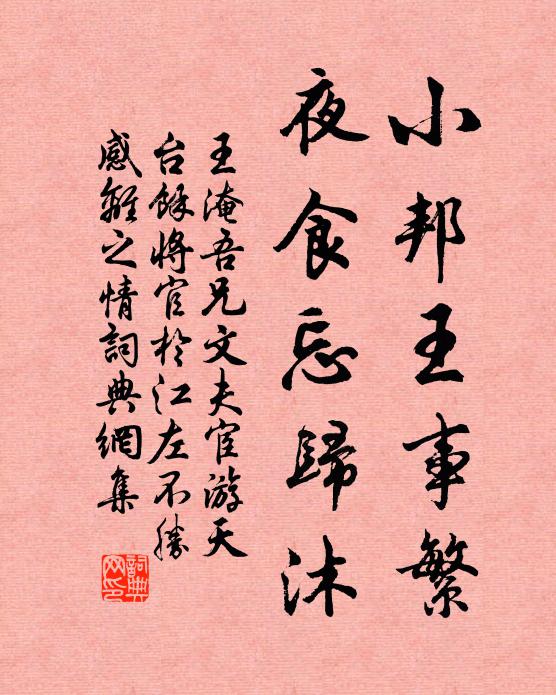 小邦王事繁
夜食忘歸沐
王淹吾兄文夫宦游天
台餘將官於江左不勝
感離之情詞典網集
詞典網印